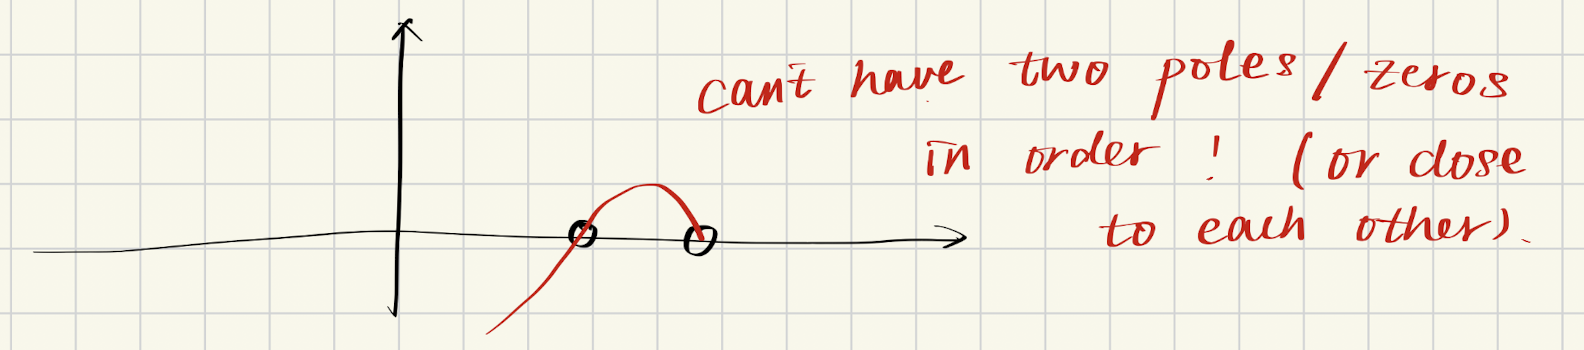 can't have two poles/zeros
in order! (or close
to each other).